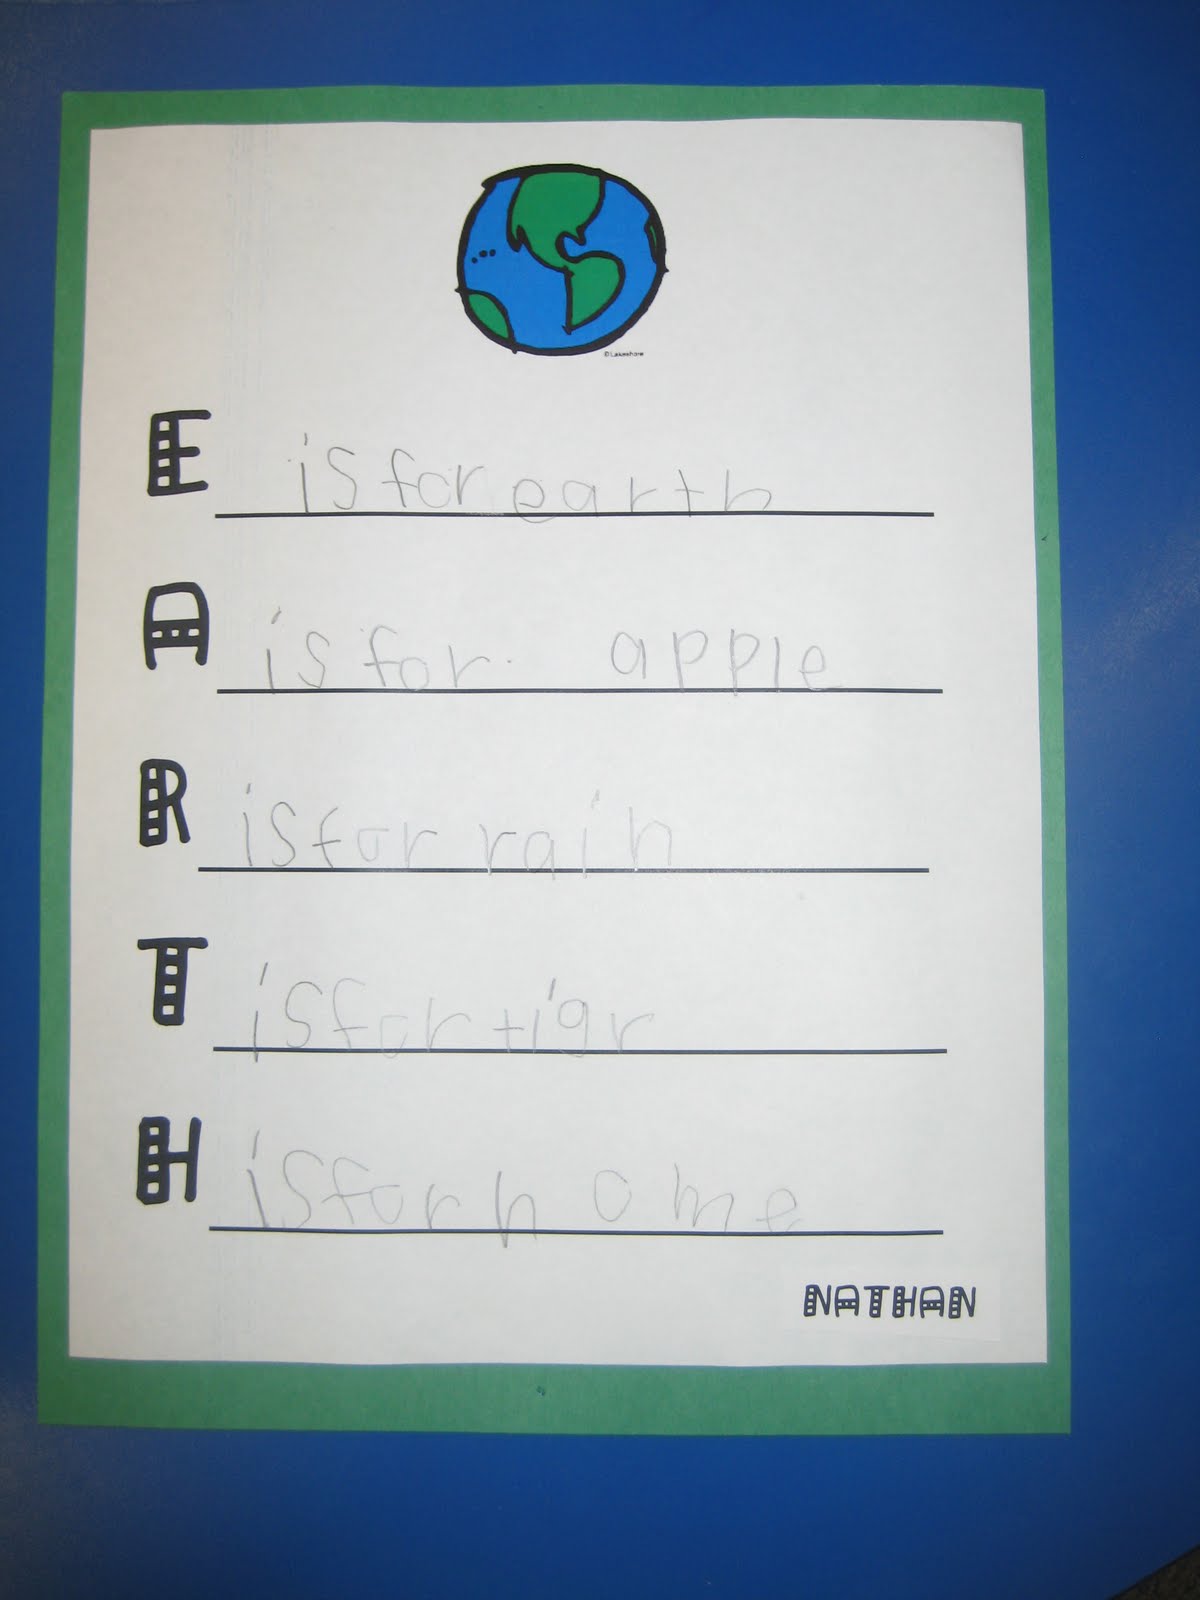 © Lakeshore
E is for earth
A is for apple
R is for rain
T is for tigr
H is for home
NATHAN